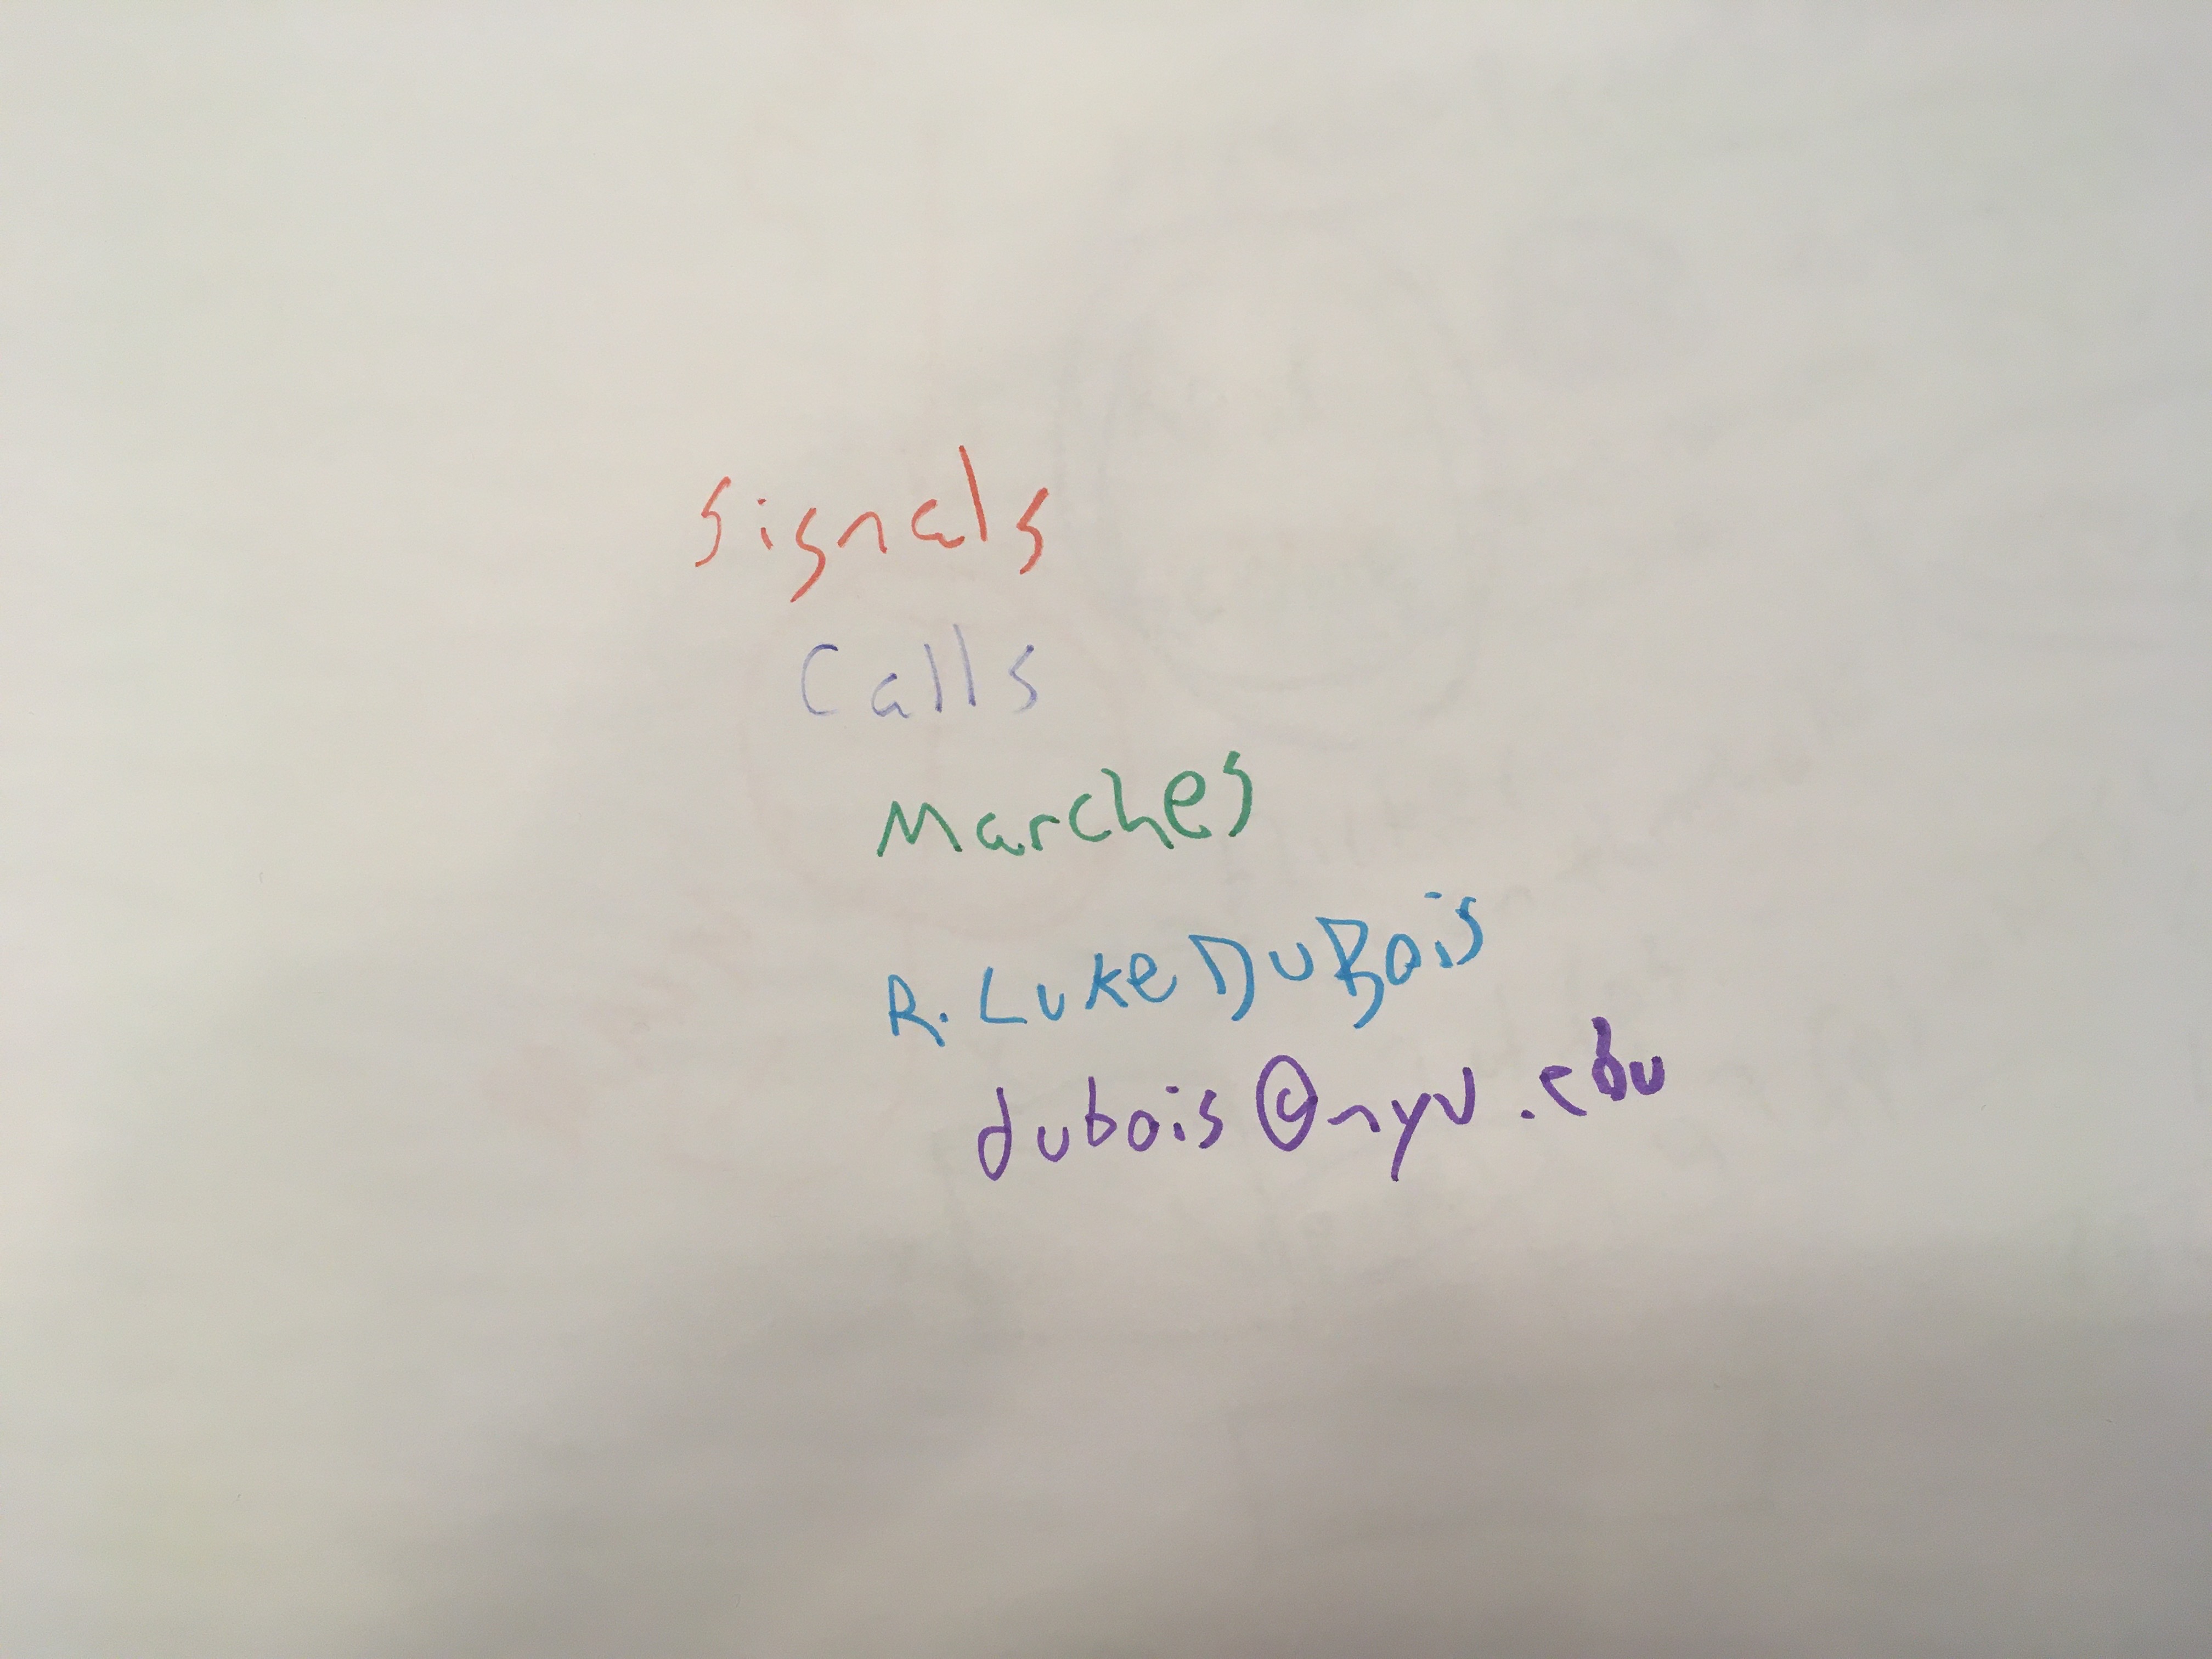 Signals
Calls
Marches
R. Luke DuBois
dubois@nyu.edu